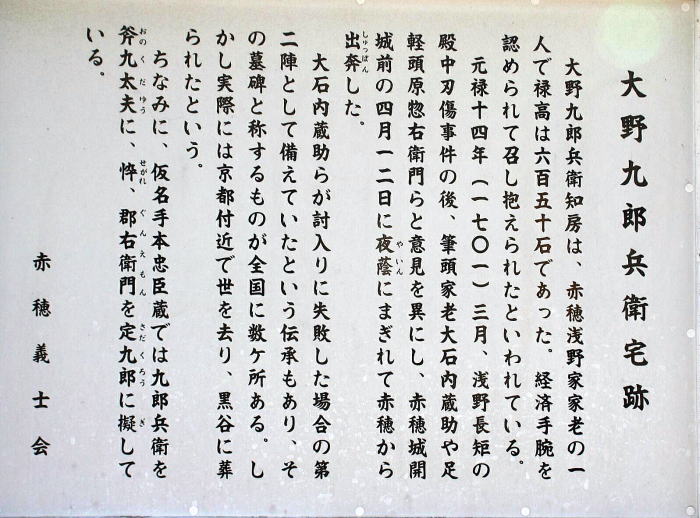 大野九郎兵衛宅跡
大野九郎兵衛知房は、赤穂浅野家家老の一
人で禄高は六百五十石であった。経済手腕を
認められて召し抱えられたといわれている。
元禄十四年（一七〇一）三月、浅野長矩の
殿中刃傷事件の後、筆頭家老大石内蔵助や足
軽頭原惣右衛門らと意見を異にし、赤穂城開
城前の四月一二日に夜蔭にまぎれて赤穂から
やいん
出奔した。
しゅっぽん
大石内蔵助らが討入りに失敗した場合の第
二陣として備えていたという伝承もあり、そ
の墓碑と称するものが全国に数ケ所ある。し
かし実際には京都付近で世を去り、黒谷に葬
られたという。
ちなみに、仮名手本忠臣蔵では九郎兵衛を
斧九太夫に、忰、郡右衛門を定九郎に擬して
おのくだゆう せがれ ぐんえもん さだくろう ぎ
いる。
赤穂義士会